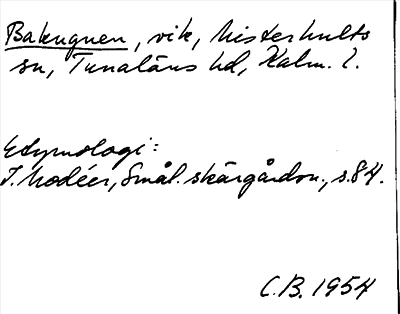 Bakugnen, vik, Misterhults
sn, Tunaläns hd, Kalm. l.
Etymologi:
I. Modéer, Smål. skärgårdsn., s. 84.
C.B. 1954